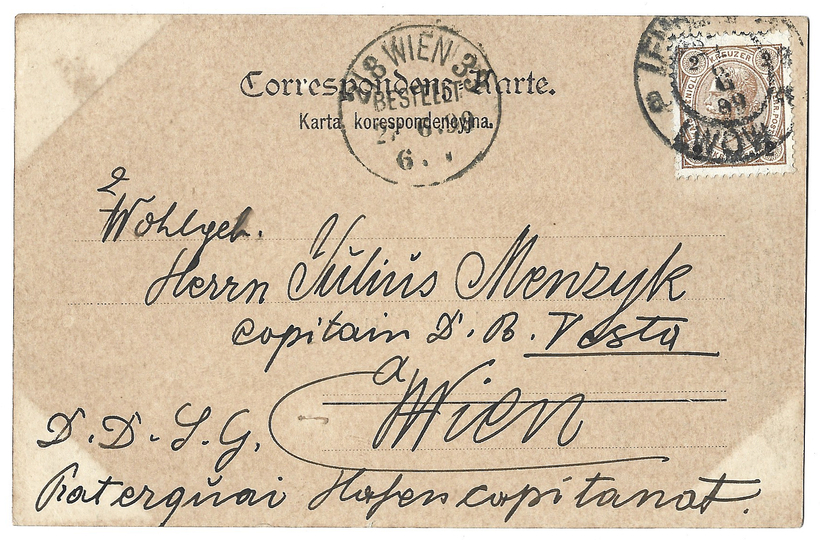 Correspondenz-Karte.
Karta korespondencyjna.
18/8 WIEN 3/3
BESTELLT
6. 99
6.
2 KREUZER 2
99
LWÓW
Wohlgeb.
Herrn Julius Menzyk
Capitain D. B. Vesta
a
Wien
D. D. S. G.
Praterquai Hafencapitanat.